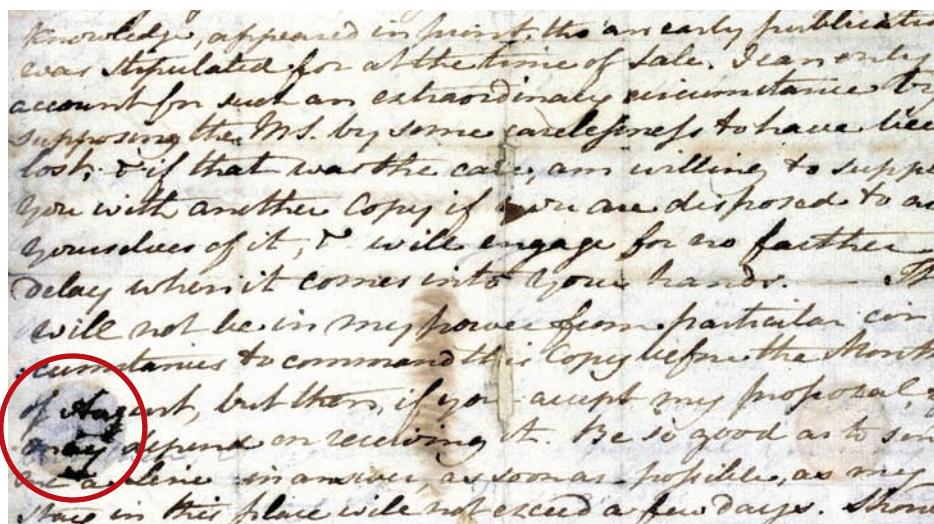 Knowledge, appeared in print, tho an early publicatio
was stipulated for at the time of Sale. I can only
account for such an extraordinary circumstance by
supposing the MS. by some carelessness to have bee
lost; & if that was the case, am willing to supp
you with another Copy if you are disposed to a
yourselves of it, & will engage for no farther
Delay when it comes into your hands. — 
will not be in my power from particular cir
cumstances to command this Copy before the Month
of August, but then, if you accept my proposal,
may depend on receiving it. Be so good as to sen
me a Line in answer, as soon as possible, as my
stay in this place will not exceed a few days. Shou